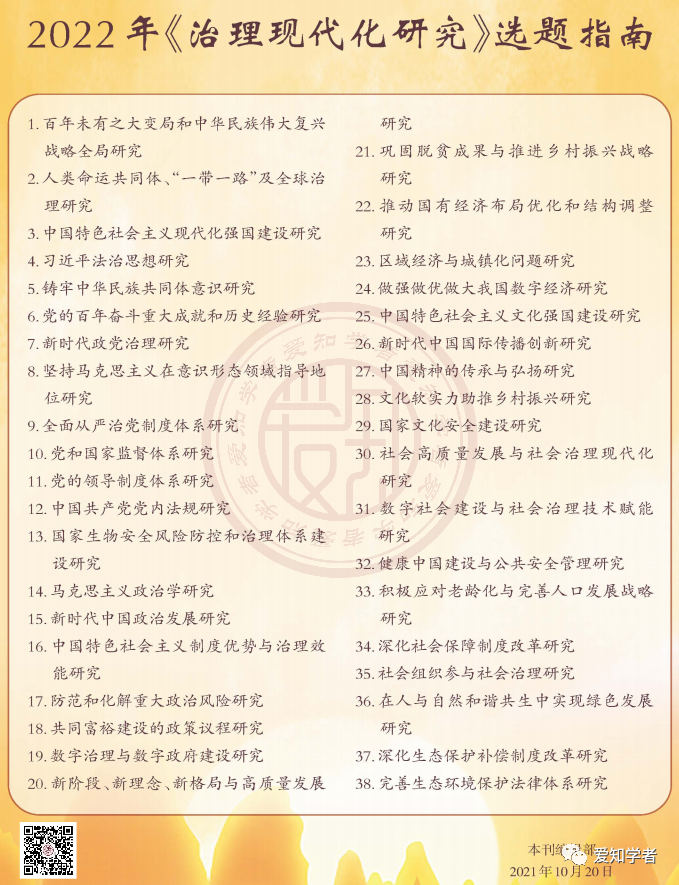 2022年《治理现代化研究》选题指南
1. 百年未有之大变局和中华民族伟大复兴
战略全局研究
2. 人类命运共同体、“一带一路”及全球治
理研究
3. 中国特色社会主义现代化强国建设研究
4. 习近平法治思想研究
5. 铸牢中华民族共同体意识研究
6. 党的百年奋斗重大成就和历史经验研究
7. 新时代政党治理研究
8. 坚持马克思主义在意识形态领域指导地
位研究
9. 全面从严治党制度体系研究
10. 党和国家监督体系研究
11. 党的领导制度体系研究
12. 中国共产党党内法规研究
13. 国家生物安全风险防控和治理体系建
设研究
14. 马克思主义政治学研究
15. 新时代中国政治发展研究
16. 中国特色社会主义制度优势与治理效
能研究
17. 防范和化解重大政治风险研究
18. 共同富裕建设的政策议程研究
19. 数字治理与数字政府建设研究
20. 新阶段、新理念、新格局与高质量发展
研究
21. 巩固脱贫成果与推进乡村振兴战略
研究
22. 推动国有经济布局优化和结构调整
研究
23. 区域经济与城镇化问题研究
24. 做强做优做大我国数字经济研究
25. 中国特色社会主义文化强国建设研究
26. 新时代中国国际传播创新研究
27. 中国精神的传承与弘扬研究
28. 文化软实力助推乡村振兴研究
29. 国家文化安全建设研究
30. 社会高质量发展与社会治理现代化
研究
31. 数字社会建设与社会治理技术赋能
研究
32. 健康中国建设与公共安全管理研究
33. 积极应对老龄化与完善人口发展战略
研究
34. 深化社会保障制度改革研究
35. 社会组织参与社会治理研究
36. 在人与自然和谐共生中实现绿色发展
研究
37. 深化生态保护补偿制度改革研究
38. 完善生态环境保护法律体系研究
本刊编辑部
爱知学者
2021年10月20日